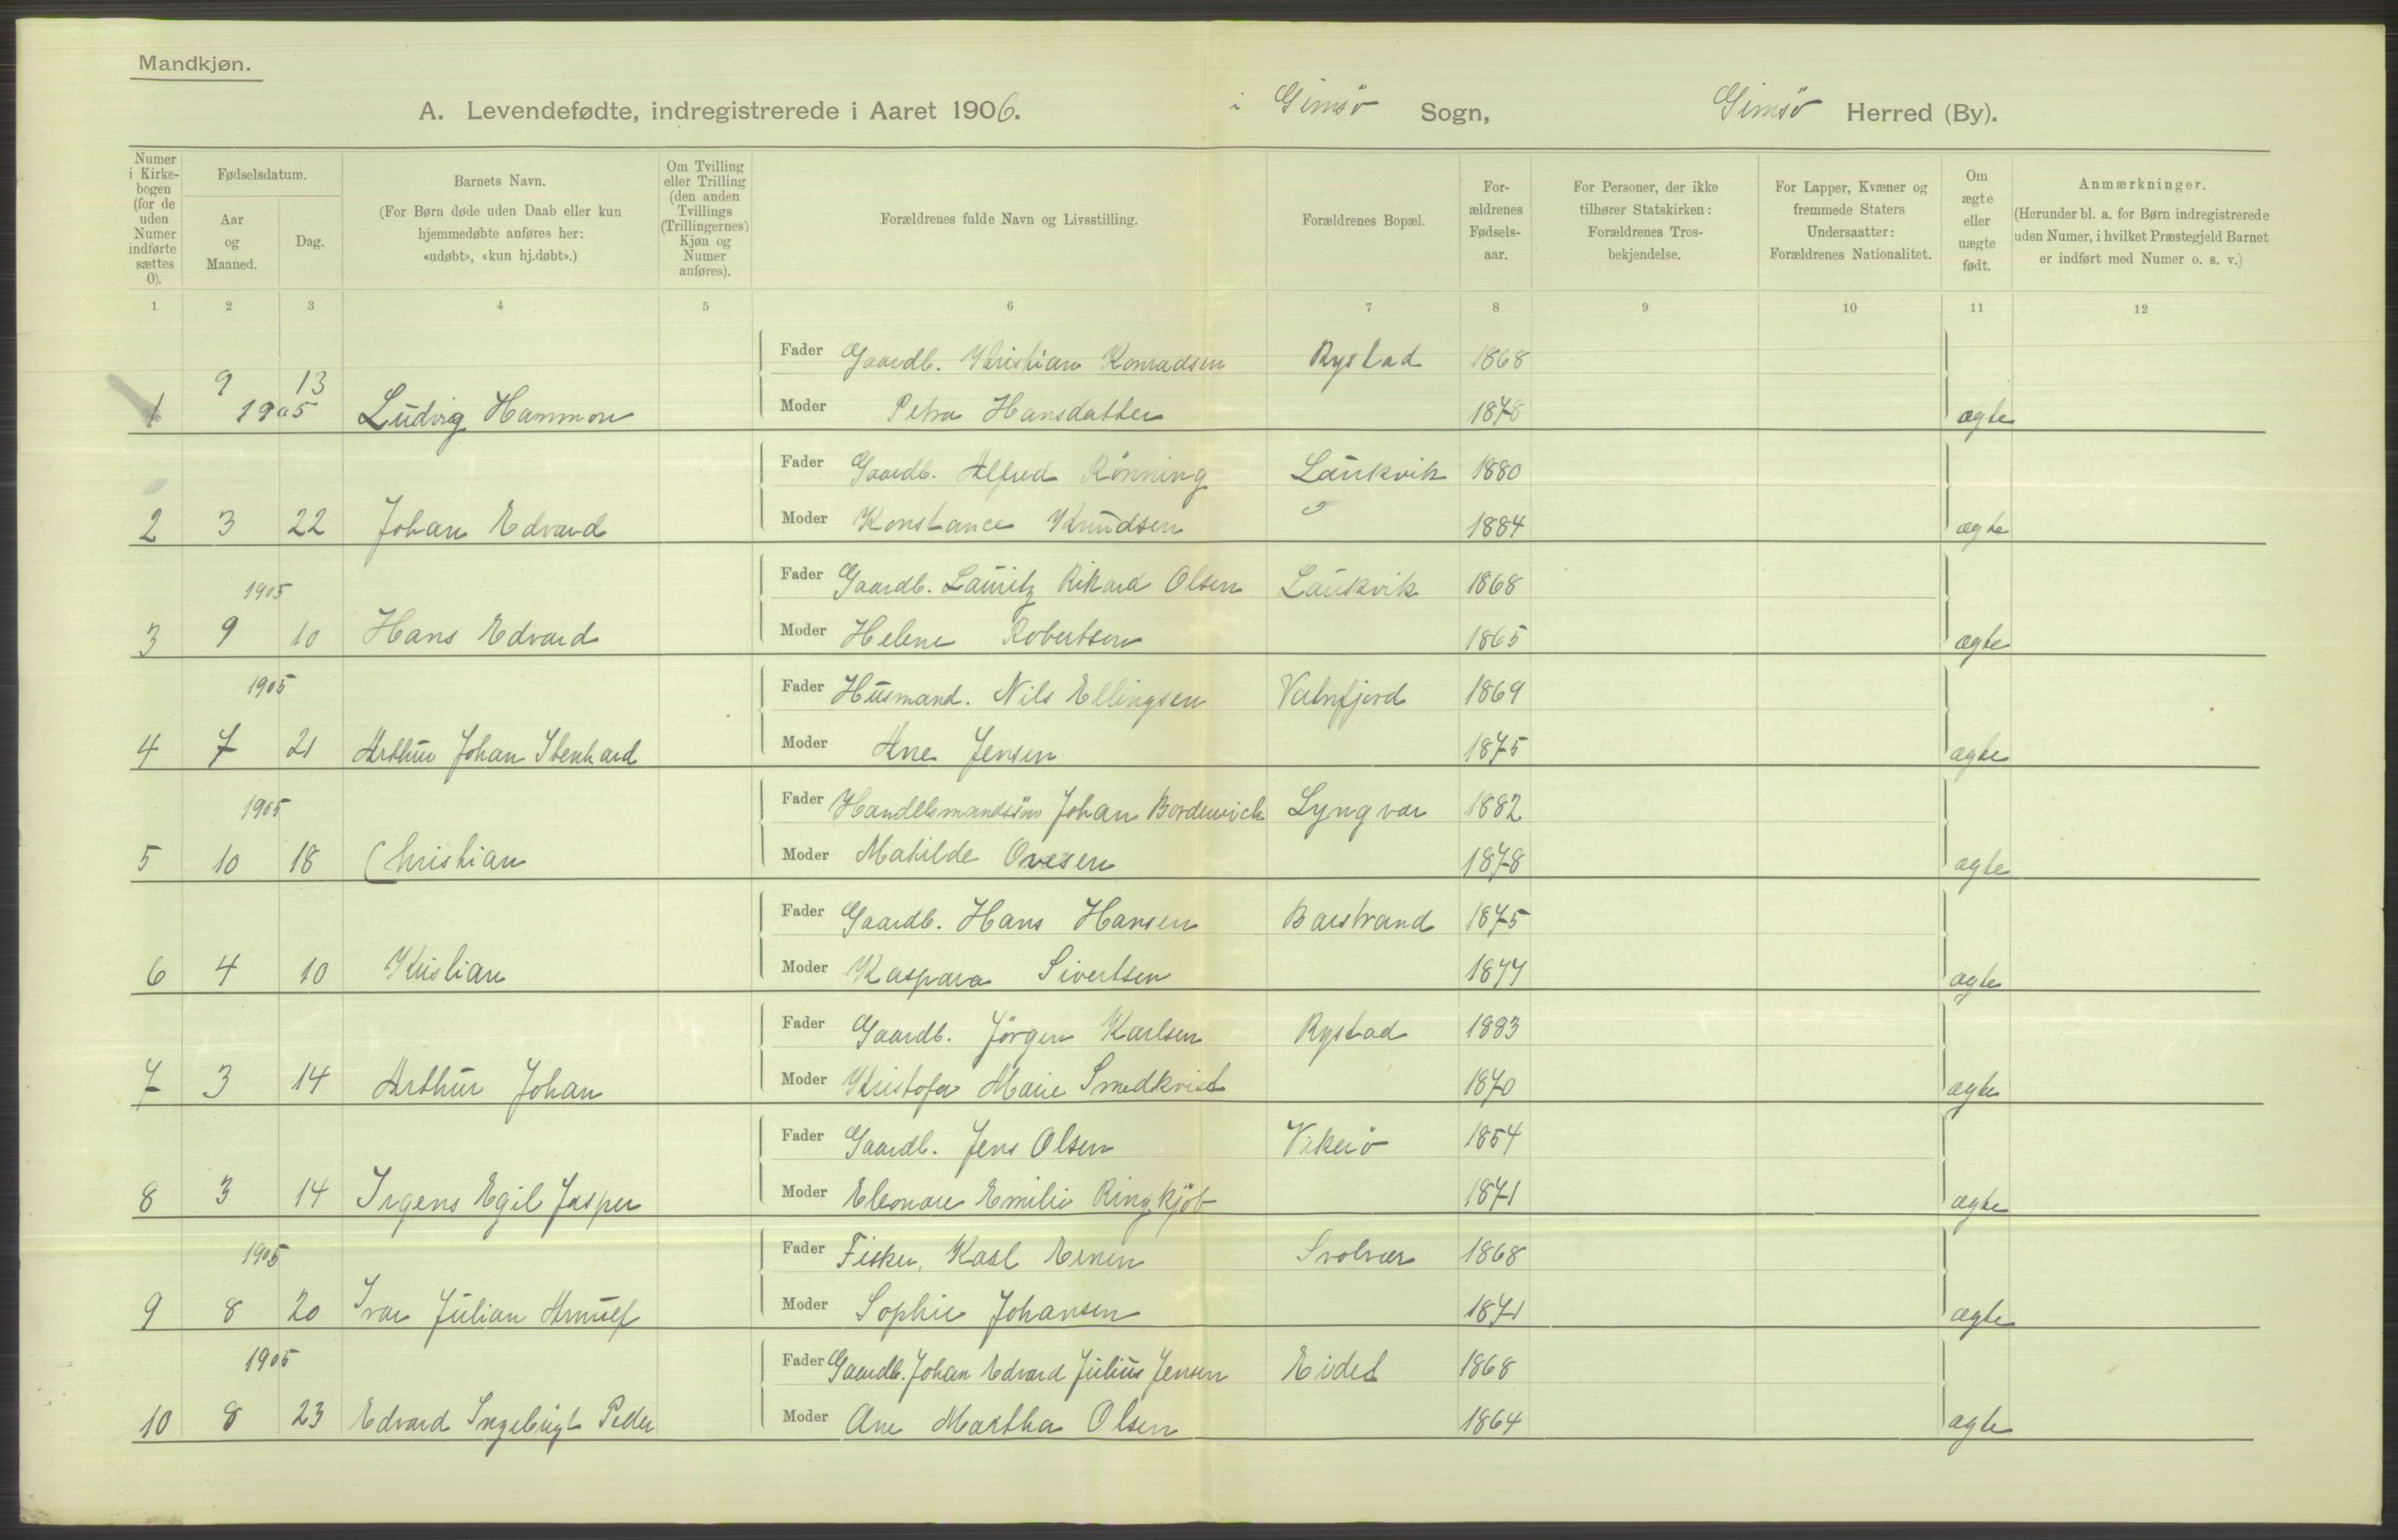 Mandkjøn.
A. Levendefødte, indregistrerede i Aaret 1906. i Gimsö Sogn, Gimsö Herred (By).
Numer i Kirke-bogen (for de uden Numer indførte sættes 0).
Fødselsdatum.
Aar og Maaned.
Dag.
Barnets Navn.
(For Børn døde uden Daab eller kun hjemmedøbte anføres her: «udøbt», «kun hj.døbt».)
Om Tvilling eller Trilling (den anden Tvillings (Trillingernes) Kjøn og Numer anføres).
Forældrenes fulde Navn og Livsstilling.
Forældrenes Bopæl.
For-ældrenes Fødsels-aar.
For Personer, der ikke tilhører Statskirken: Forældrenes Tros-bekjendelse.
For Lapper, Kvæner og fremmede Staters Undersaatter: Forældrenes Nationalitet.
Om ægte eller uægte født.
Anmærkninger.
(Herunder bl. a. for Børn indregistrerede uden Numer, i hvilket Præstegjeld Barnet er indført med Numer o. s. v.)
1 2 3 4 5 6 7 8 9 10 11 12
Fader Gaardb. Kristian Konradsen Rystad 1868
1 9 13 1905 Ludvig Hammon Moder Petra Hansdatter 1878 ægte
Fader Gaardb. Alfred Rönning Laukvik 1880
2 3 22 Johan Edvard Moder Konstance Knudsen " 1884 ægte
1905 Fader Gaardb. Lauritz Rikard Olsen Laukvik 1868
3 9 10 Hans Edvard Moder Helene Robertsen 1865 ægte
1905 Fader Husmand. Nils Ellingsen Vatnfjord 1869
4 7 21 Arthur Johan Stenhard Moder Ane Jensen 1875 ægte
1905 Fader Handelsmandssön Johan Bordewich Lyngvær 1882
5 10 18 Christian Moder Mathilde Ovesen 1878 ægte
Fader Gaardb. Hans Hansen Barstrand 1875
6 4 10 Kristian Moder Kaspara Sivertsen 1877 ægte
Fader Gaardb. Jörgen Karlsen Rystad 1883
7 3 14 Arthur Johan Moder Kristofa Marie Smedkvist 1870 ægte
Fader Gaardb. Jens Olsen 1854
8 3 14 Irgens Egil Jasper Moder Eleonore Emilie Ringkjöb 1871 ægte
1905 Fader Fisker, Karl Ernen Svolvær 1868
9 8 20 Ivar Julian Arnulf Moder Sophie Johansen 1871 ægte
1905 Fader Gaardb. Johan Edvard Julius Jensen Eidet 1868
10 8 23 Edvard Ingebrigt Peder Moder Ane Martha Olsen 1864 ægte